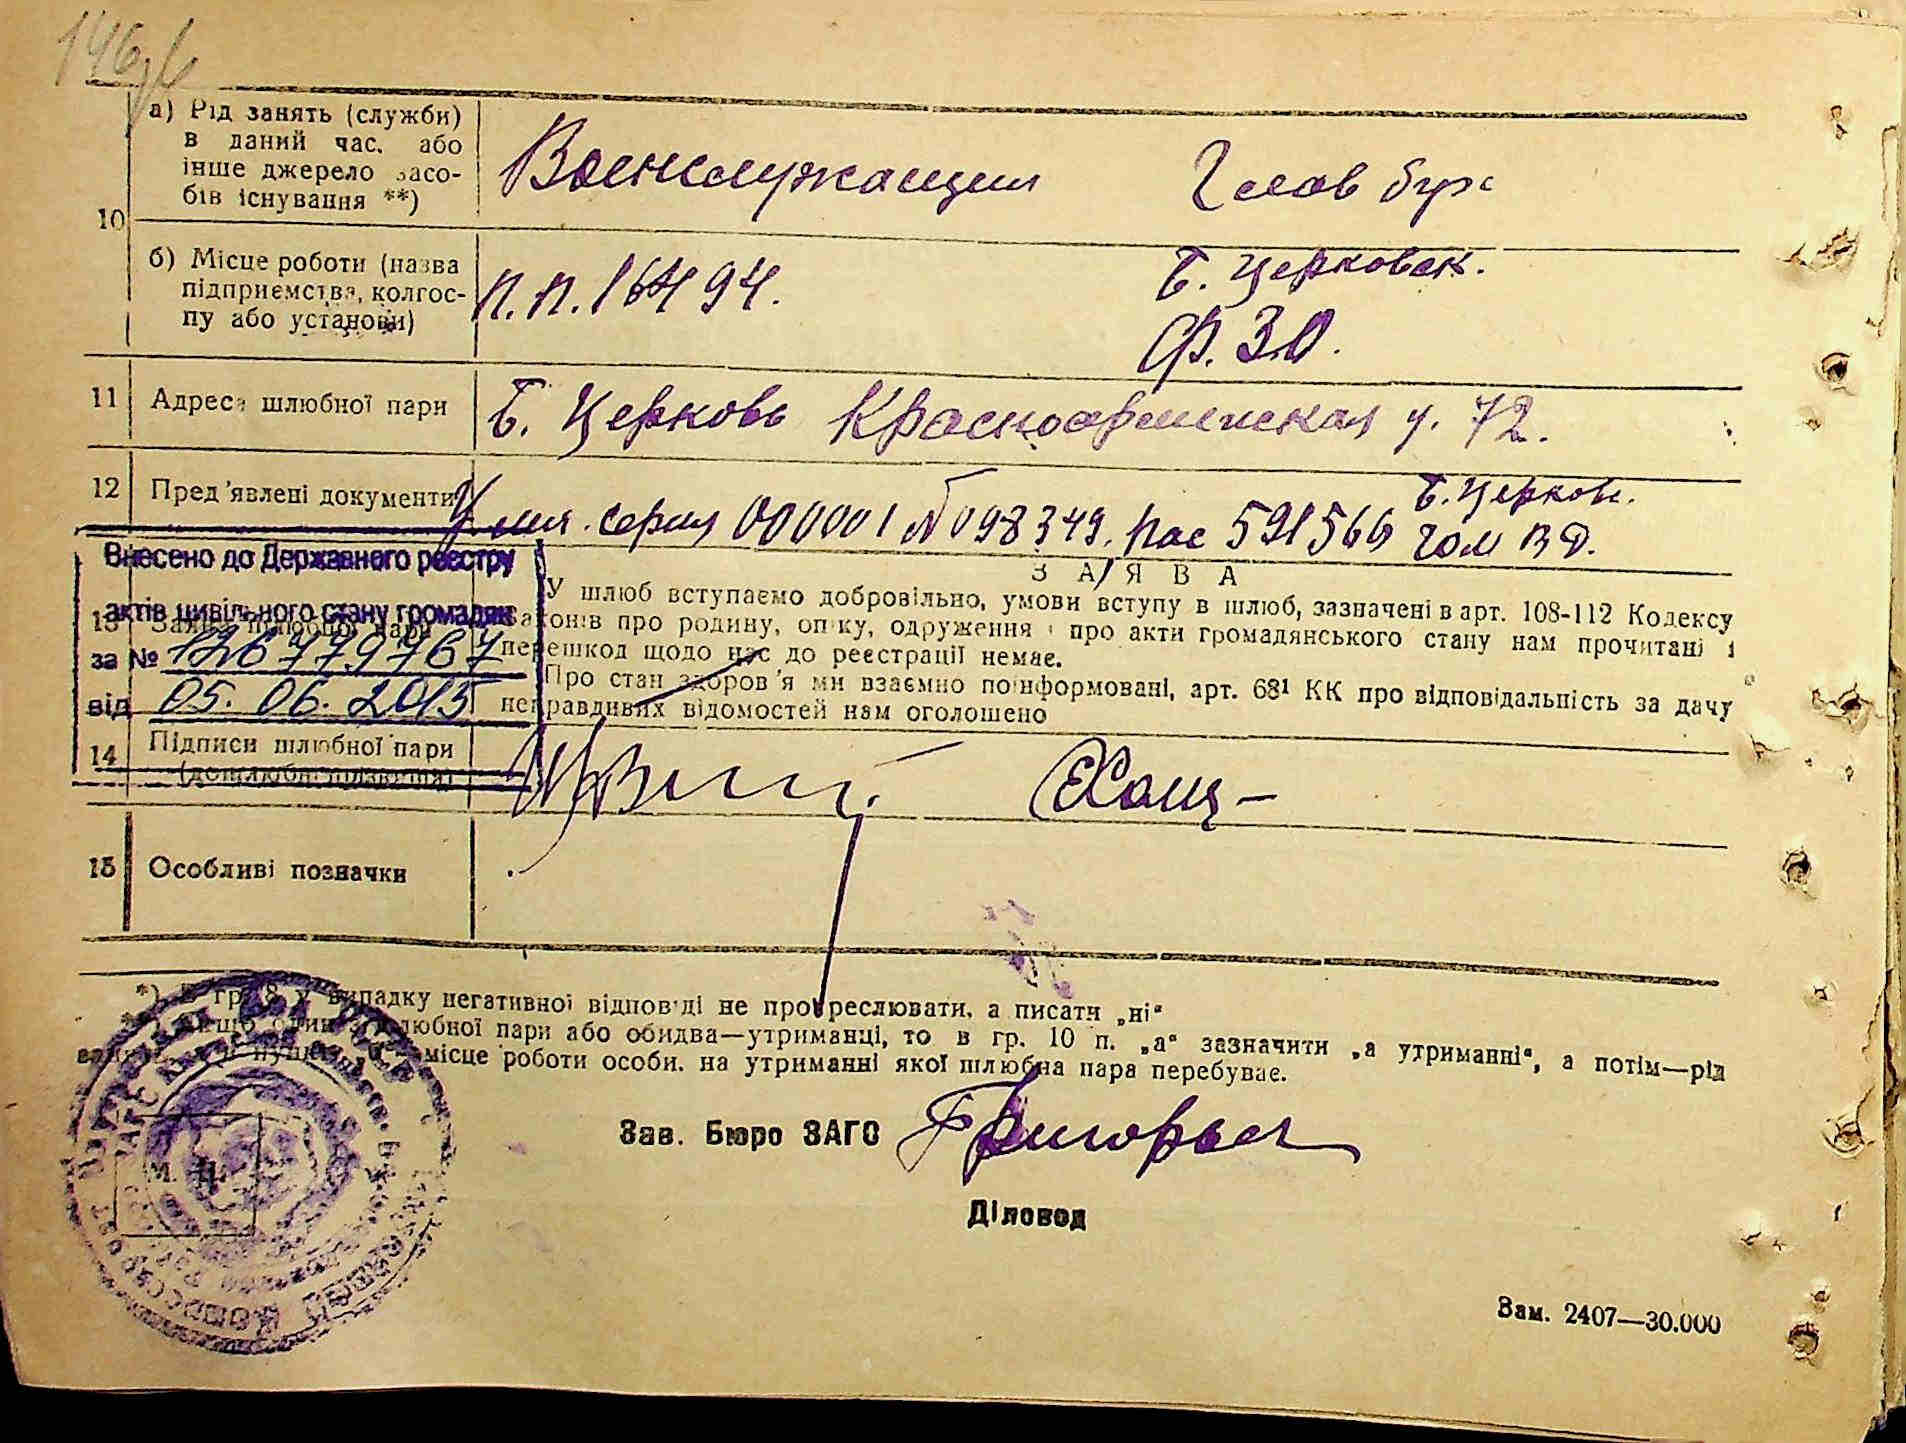 а) Рід занять (служби)
в даний час. або
інше джерело засо-
бів існування **)
Военслужащий
Глав бух
10
б) Місце роботи (назва
підприємства, колгос-
пу або установи)
п.п. 16494.
Б. Церковск.
11 Адреса шлюбної пари
Б. Церковь Красноармейская у. 72.
12 Пред'явлені документи
серия 000001 № 098349. пас 591566
Б. Церков.
Внесено до Державного реєстру
актів цивільного стану громадян
за № 126779767
від 05.06.2015
13 Заява шлюбної пари
З А Я В А
У шлюб вступаємо добровільно, умови вступу в шлюб, зазначені в арт. 108-112 Кодексу
законів про родину, опіку, одруження і про акти громадянського стану нам прочитані і
перешкод щодо нас до реєстрації немає.
Про стан здоров'я ми взаємно поінформовані, арт. 68¹ КК про відповідальність за дачу
неправдивих відомостей нам оголошено
14 Підписи шлюбної пари
15 Особливі позначки
*) В гр. 8 у випадку негативної відповіді не прокреслювати, а писати „ні“
Якщо один з шлюбної пари або обидва—утриманці, то в гр. 10 п. „а“ зазначити „а утриманні“, а потім—рід
місце роботи особи. на утриманні якої шлюбна пара перебуває.
Зав. Бюро ЗАГС Григорьев
М. П.
Діловод
Зам. 2407—30.000